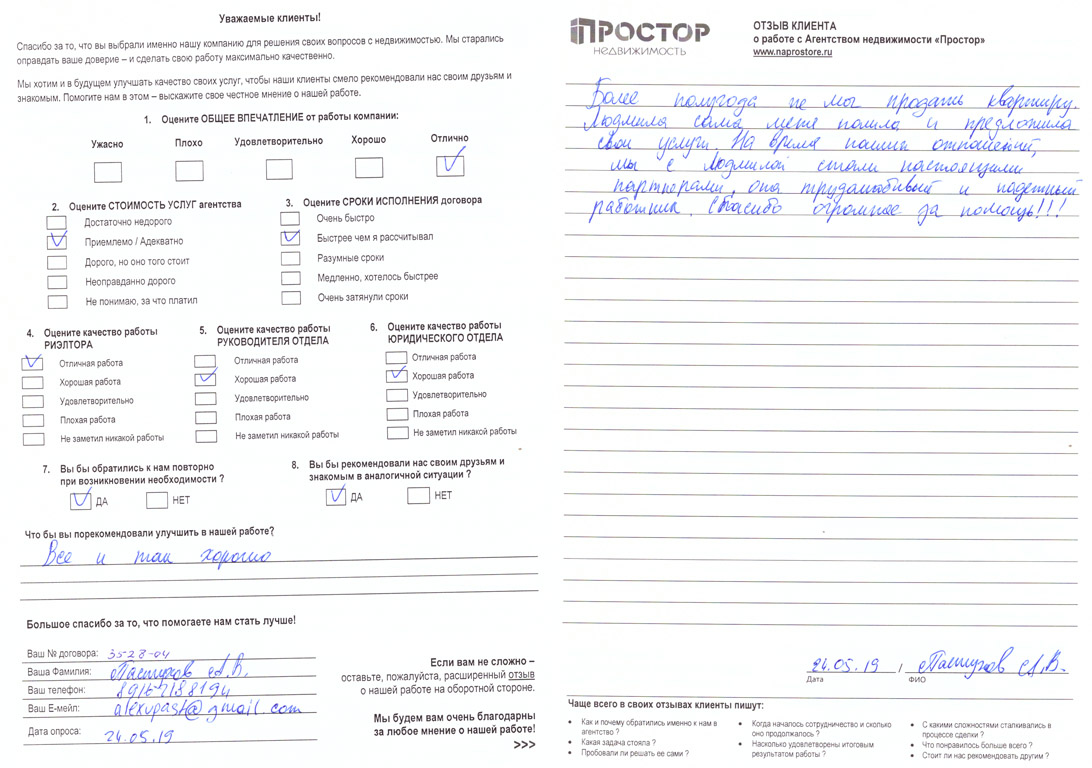 Уважаемые клиенты!
Спасибо за то, что вы выбрали именно нашу компанию для решения своих вопросов с недвижимостью. Мы старались
оправдать ваше доверие – и сделать свою работу максимально качественно.
Мы хотим и в будущем улучшать качество своих услуг, чтобы наши клиенты смело рекомендовали нас своим друзьям и
знакомым. Помогите нам в этом – выскажите свое честное мнение о нашей работе.
1. Оцените ОБЩЕЕ ВПЕЧАТЛЕНИЕ от работы компании:
Ужасно Плохо Удовлетворительно Хорошо Отлично
2. Оцените СТОИМОСТЬ УСЛУГ агентства
Достаточно недорого
Приемлемо / Адекватно
Дорого, но оно того стоит
Неоправданно дорого
Не понимаю, за что платил
3. Оцените СРОКИ ИСПОЛНЕНИЯ договора
Очень быстро
Быстрее чем я рассчитывал
Разумные сроки
Медленно, хотелось быстрее
Очень затянули сроки
4. Оцените качество работы
РИЭЛТОРА
Отличная работа
Хорошая работа
Удовлетворительно
Плохая работа
Не заметил никакой работы
5. Оцените качество работы
РУКОВОДИТЕЛЯ ОТДЕЛА
Отличная работа
Хорошая работа
Удовлетворительно
Плохая работа
Не заметил никакой работы
6. Оцените качество работы
ЮРИДИЧЕСКОГО ОТДЕЛА
Отличная работа
Хорошая работа
Удовлетворительно
Плохая работа
Не заметил никакой работы
7. Вы бы обратились к нам повторно
при возникновении необходимости ?
ДА НЕТ
8. Вы бы рекомендовали нас своим друзьям и
знакомым в аналогичной ситуации ?
ДА НЕТ
Что бы вы порекомендовали улучшить в нашей работе?
Все и так хорошо
Большое спасибо за то, что помогаете нам стать лучше!
Ваш № договора: 3528-04
Ваша Фамилия: Пастухов А.В.
Ваш телефон: 89167188194
Ваш Е-мейл: alexvpast@gmail.com
Дата опроса: 24.05.19
Если вам не сложно –
оставьте, пожалуйста, расширенный отзыв
о нашей работе на оборотной стороне.
Мы будем вам очень благодарны
за любое мнение о нашей работе!
>>>
ПРОСТОР
НЕДВИЖИМОСТЬ
ОТЗЫВ КЛИЕНТА
о работе с Агентством недвижимости «Простор»
www.naprostore.ru
Более полугода не мог продать квартиру.
Людмила сама меня нашла и предложила
свои услуги. На время наших отношений,
мы с Людмилой стали настоящими
партнерами, она трудолюбивый и надежный
работник. Спасибо огромное за помощь!!!
24.05.19 / Пастухов А.В.
Дата ФИО
Чаще всего в своих отзывах клиенты пишут:
• Как и почему обратились именно к нам в
агентство ?
• Какая задача стояла ?
• Пробовали ли решать ее сами ?
• Когда началось сотрудничество и сколько
оно продолжалось ?
• Насколько удовлетворены итоговым
результатом работы ?
• С какими сложностями сталкивались в
процессе сделки ?
• Что понравилось больше всего ?
• Стоит ли нас рекомендовать другим ?